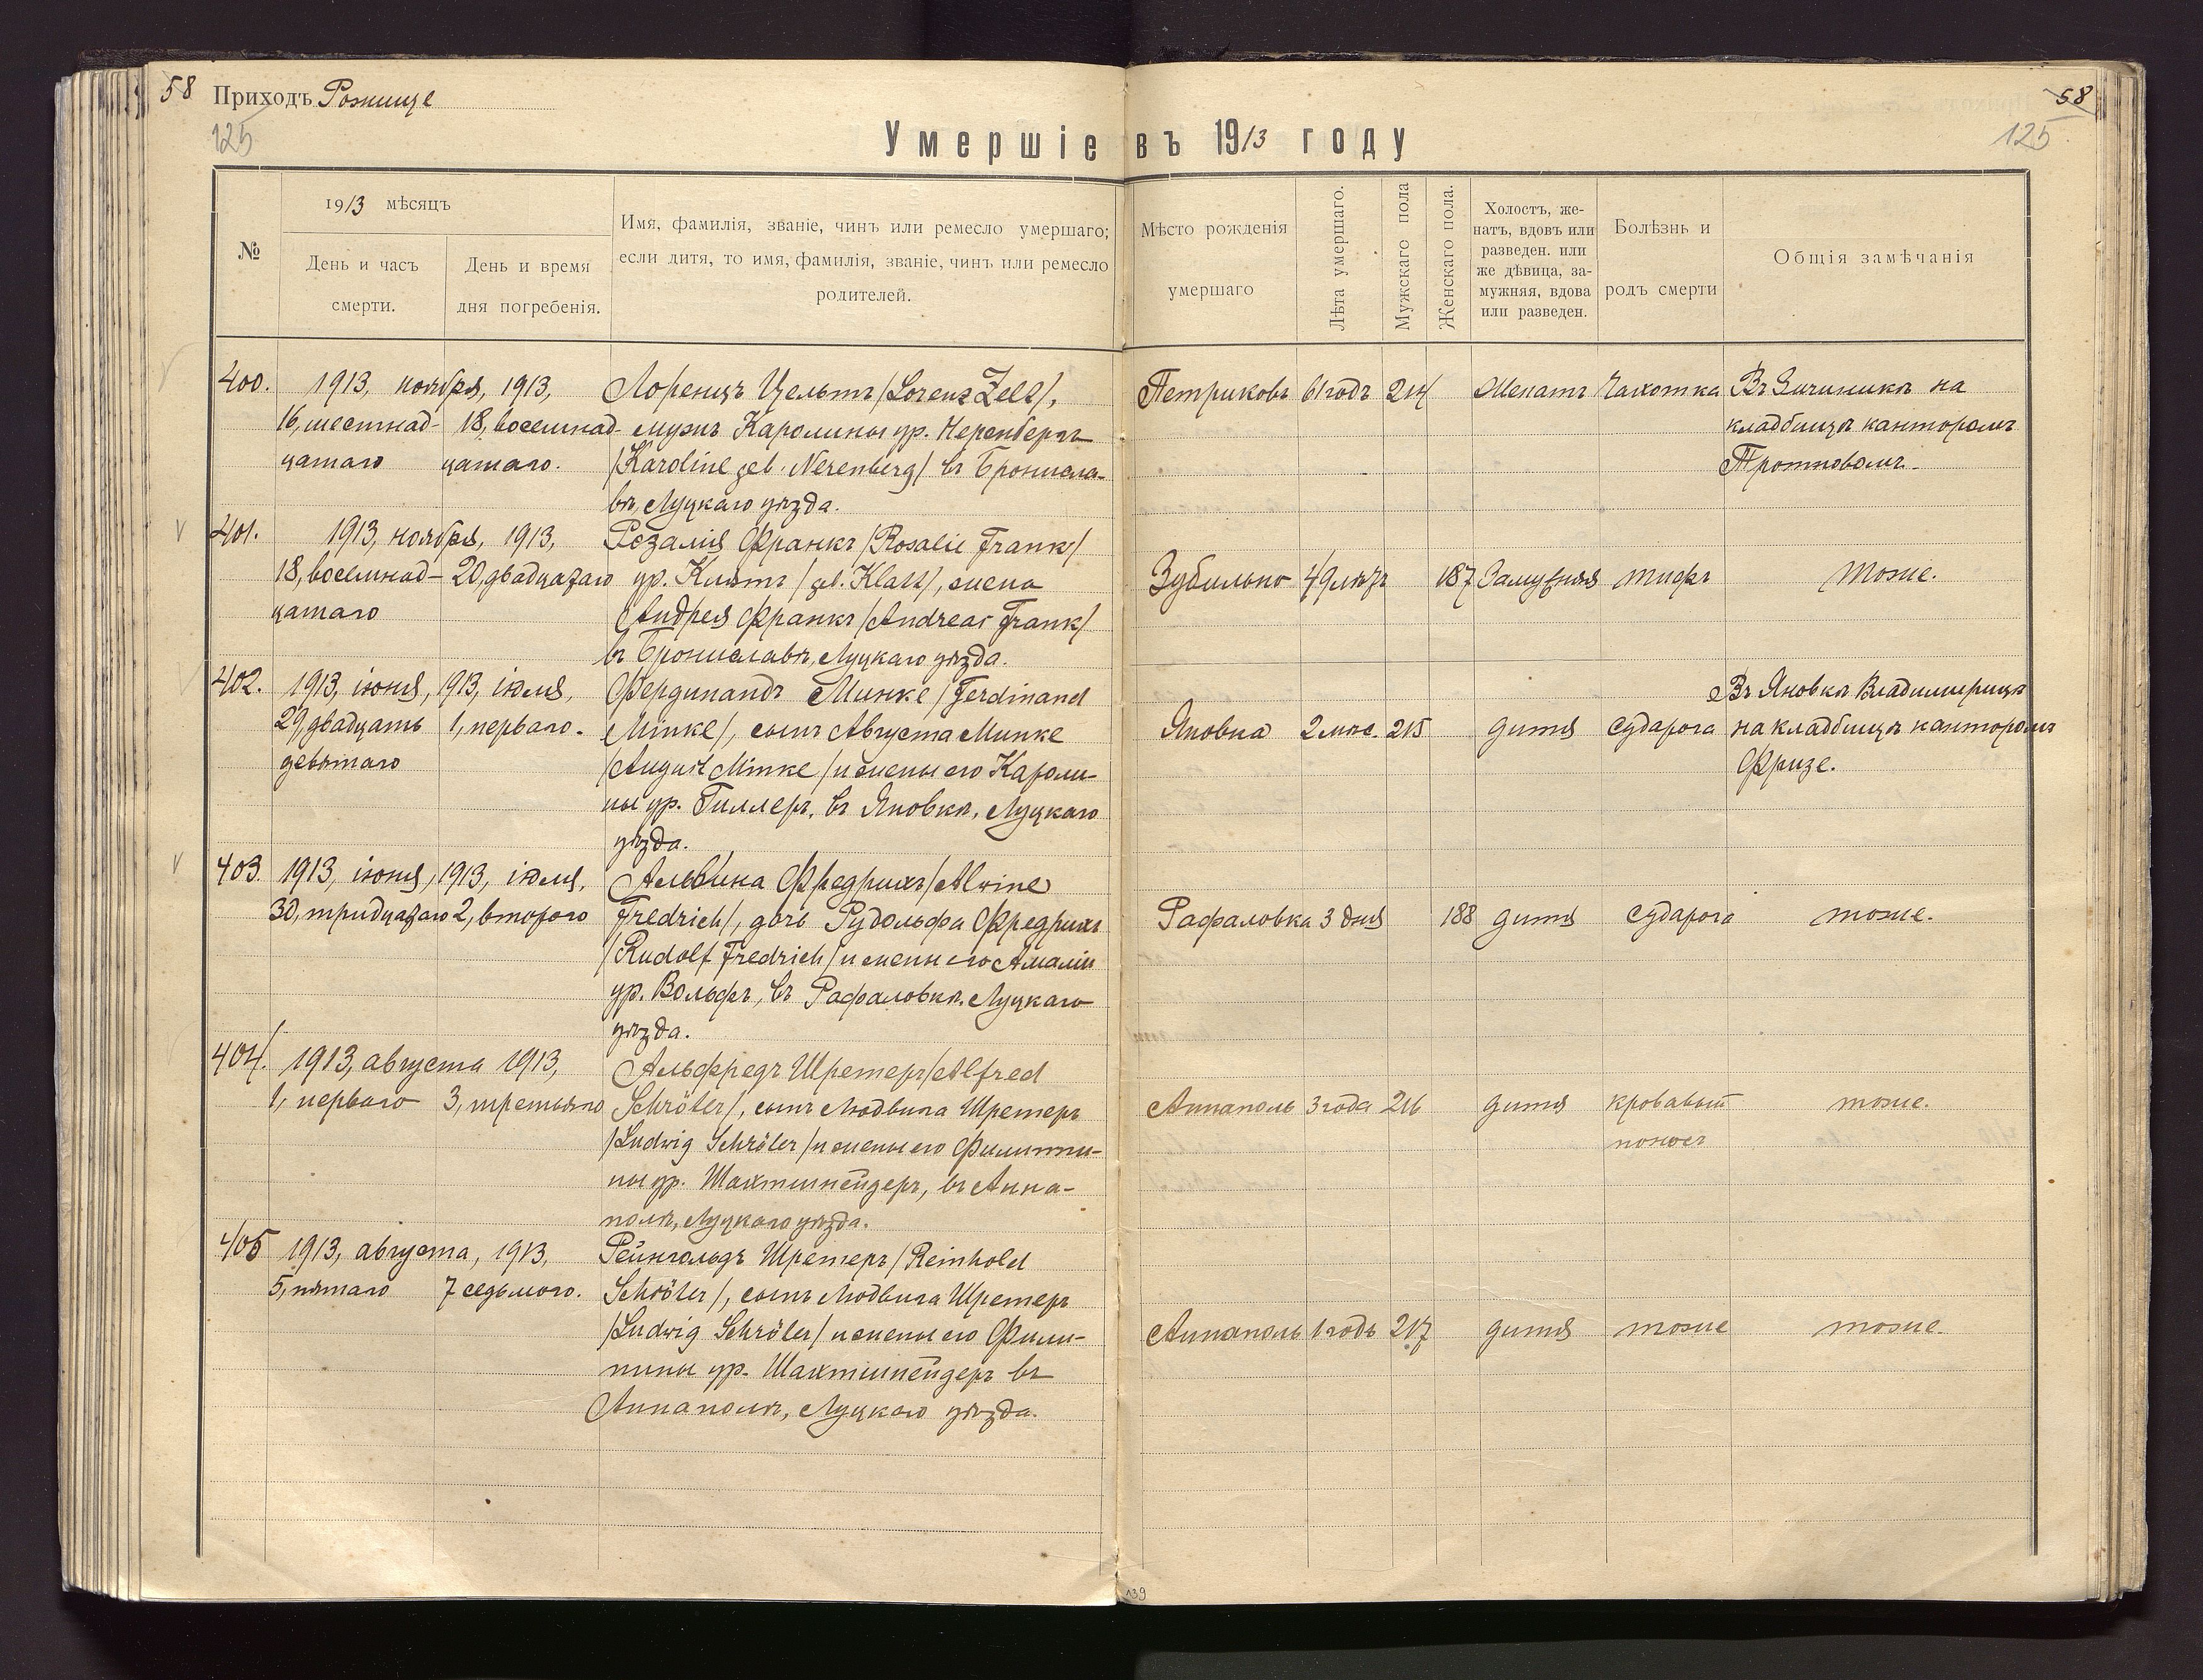 58 Приходъ Рожище
125
58
125
Умершіе въ 1913 году
№
1913 мѣсяцъ
День и часъ
смерти.
День и время
дня погребенія.
Имя, фамилія, званіе, чинъ или ремесло умершаго;
если дитя, то имя, фамилія, званіе, чинъ или ремесло
родителей.
Мѣсто рожденія
умершаго
Лѣта умершаго.
Мужскаго пола
Женскаго пола.
Холостъ, же-
натъ, вдовъ или
разведен. или
же дѣвица, за-
мужняя, вдова
или разведен.
Болѣзнь и
родъ смерти
Общія замѣчанія
400.
1913, ноября, 1913,
16, шестнад- 18, восемнад-
цатаго цатаго.
Лоренцъ Цельтъ /Lorenz Zelt/,
мужъ Каролины ур. Неренбергъ
/Karoline geb. Nerenberg/ въ Бронисла-
вѣ, Луцкаго уѣзда.
Петриковъ 61 годъ 214 Женатъ Чахотка
на
кладбищѣ канторомъ
401.
1913, ноября, 1913,
18, восемнад- 20, двадцатаго
цатаго
Розалія Франкъ /Rosalie Frank/
ур. Клятъ /geb. Klatt/, жена
Андрея Франкъ /Andreas Frank/
въ Брониславѣ, Луцкаго уѣзда.
Зубильно 49 лѣтъ 187 Замужняя тифъ тоже.
402.
1913, іюня, 1913, іюля,
29, двадцать 1, перваго.
девятаго
Фердинандъ Минке /Ferdinand
Minke/, сынъ Августа Минке
/August Minke/ и жены его Кароли-
ны ур. Гиллеръ, въ Яновкѣ, Луцкаго
уѣзда.
Яновка 2 мѣс. 215 дитя судорога
Въ Яновкѣ
на кладбищѣ канторомъ
Фризе.
403.
1913, іюня, 1913, іюля,
30, тридцатаго 2, второго
Альвина Фредрихъ /Alwine
Fredrich/, дочь Рудольфа Фредрихъ
/Rudolf Fredrich/ и жены его Амаліи
ур. Вольфъ, въ Рафаловкѣ, Луцкаго
уѣзда.
Рафаловка 3 дня 188 дитя судорога тоже.
404.
1913, августа 1913,
1, перваго 3, третьяго
Альфредъ Шретеръ /Alfred
Schröter/, сынъ Людвига Шретеръ
/Ludwig Schröter/ и жены его Филиппи-
ны ур. Шахтшнейдеръ, въ Анна-
полѣ, Луцкаго уѣзда.
Аннаполь 3 года 216 дитя кровавый тоже.
поносъ
405
1913, августа, 1913,
5, пятаго 7 седьмого.
Рейнгольдъ Шретеръ /Reinhold
Schröter/, сынъ Людвига Шретеръ
/Ludwig Schröter/ и жены его Фили-
пины ур. Шахтшнейдеръ въ
Аннаполѣ, Луцкаго уѣзда.
Аннаполь 1 годъ 217 дитя тоже тоже.
139